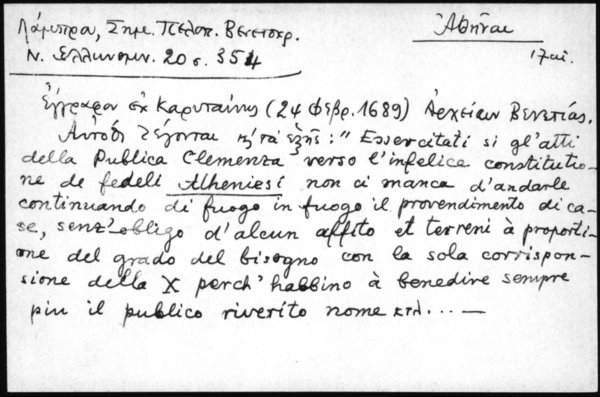 Λάμπρου, Σημ. Πελοπ. Βενετοκρ.
Ν. Ελληνομν. 20 σ. 354
Ἀθῆναι
17 αἰ.
Ἔγγραφον ἐκ Καρυταίνης (24 Φεβρ. 1689) Ἀρχείων Βενετίας.
Αὐτόθι λέγονται κ τὰ ἑξῆς: "Essercitati si gl'atti
della Publica Clemenza verso l'infelice constitutio-
ne de fedeli Atheniesi non ci manca d'andarle
continuando di fuogo in fuogo il provendimento di ca-
se, senz'obligo d'alcun affito et terreni à proporti-
one del grado del bisogno con la sola corrispon-
sione della X perch' habbino à benedire sempre
piu il publico riverito nome κτλ...—